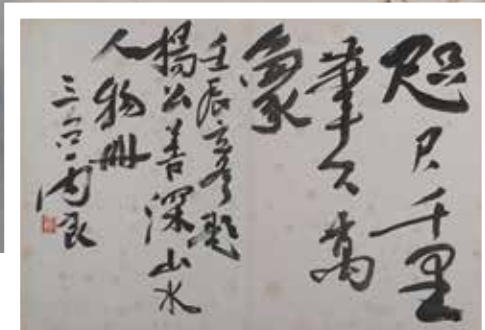 咫尺千里
筆下萬
象
壬辰立冬題
楊公善深山水
人物冊
三丙良